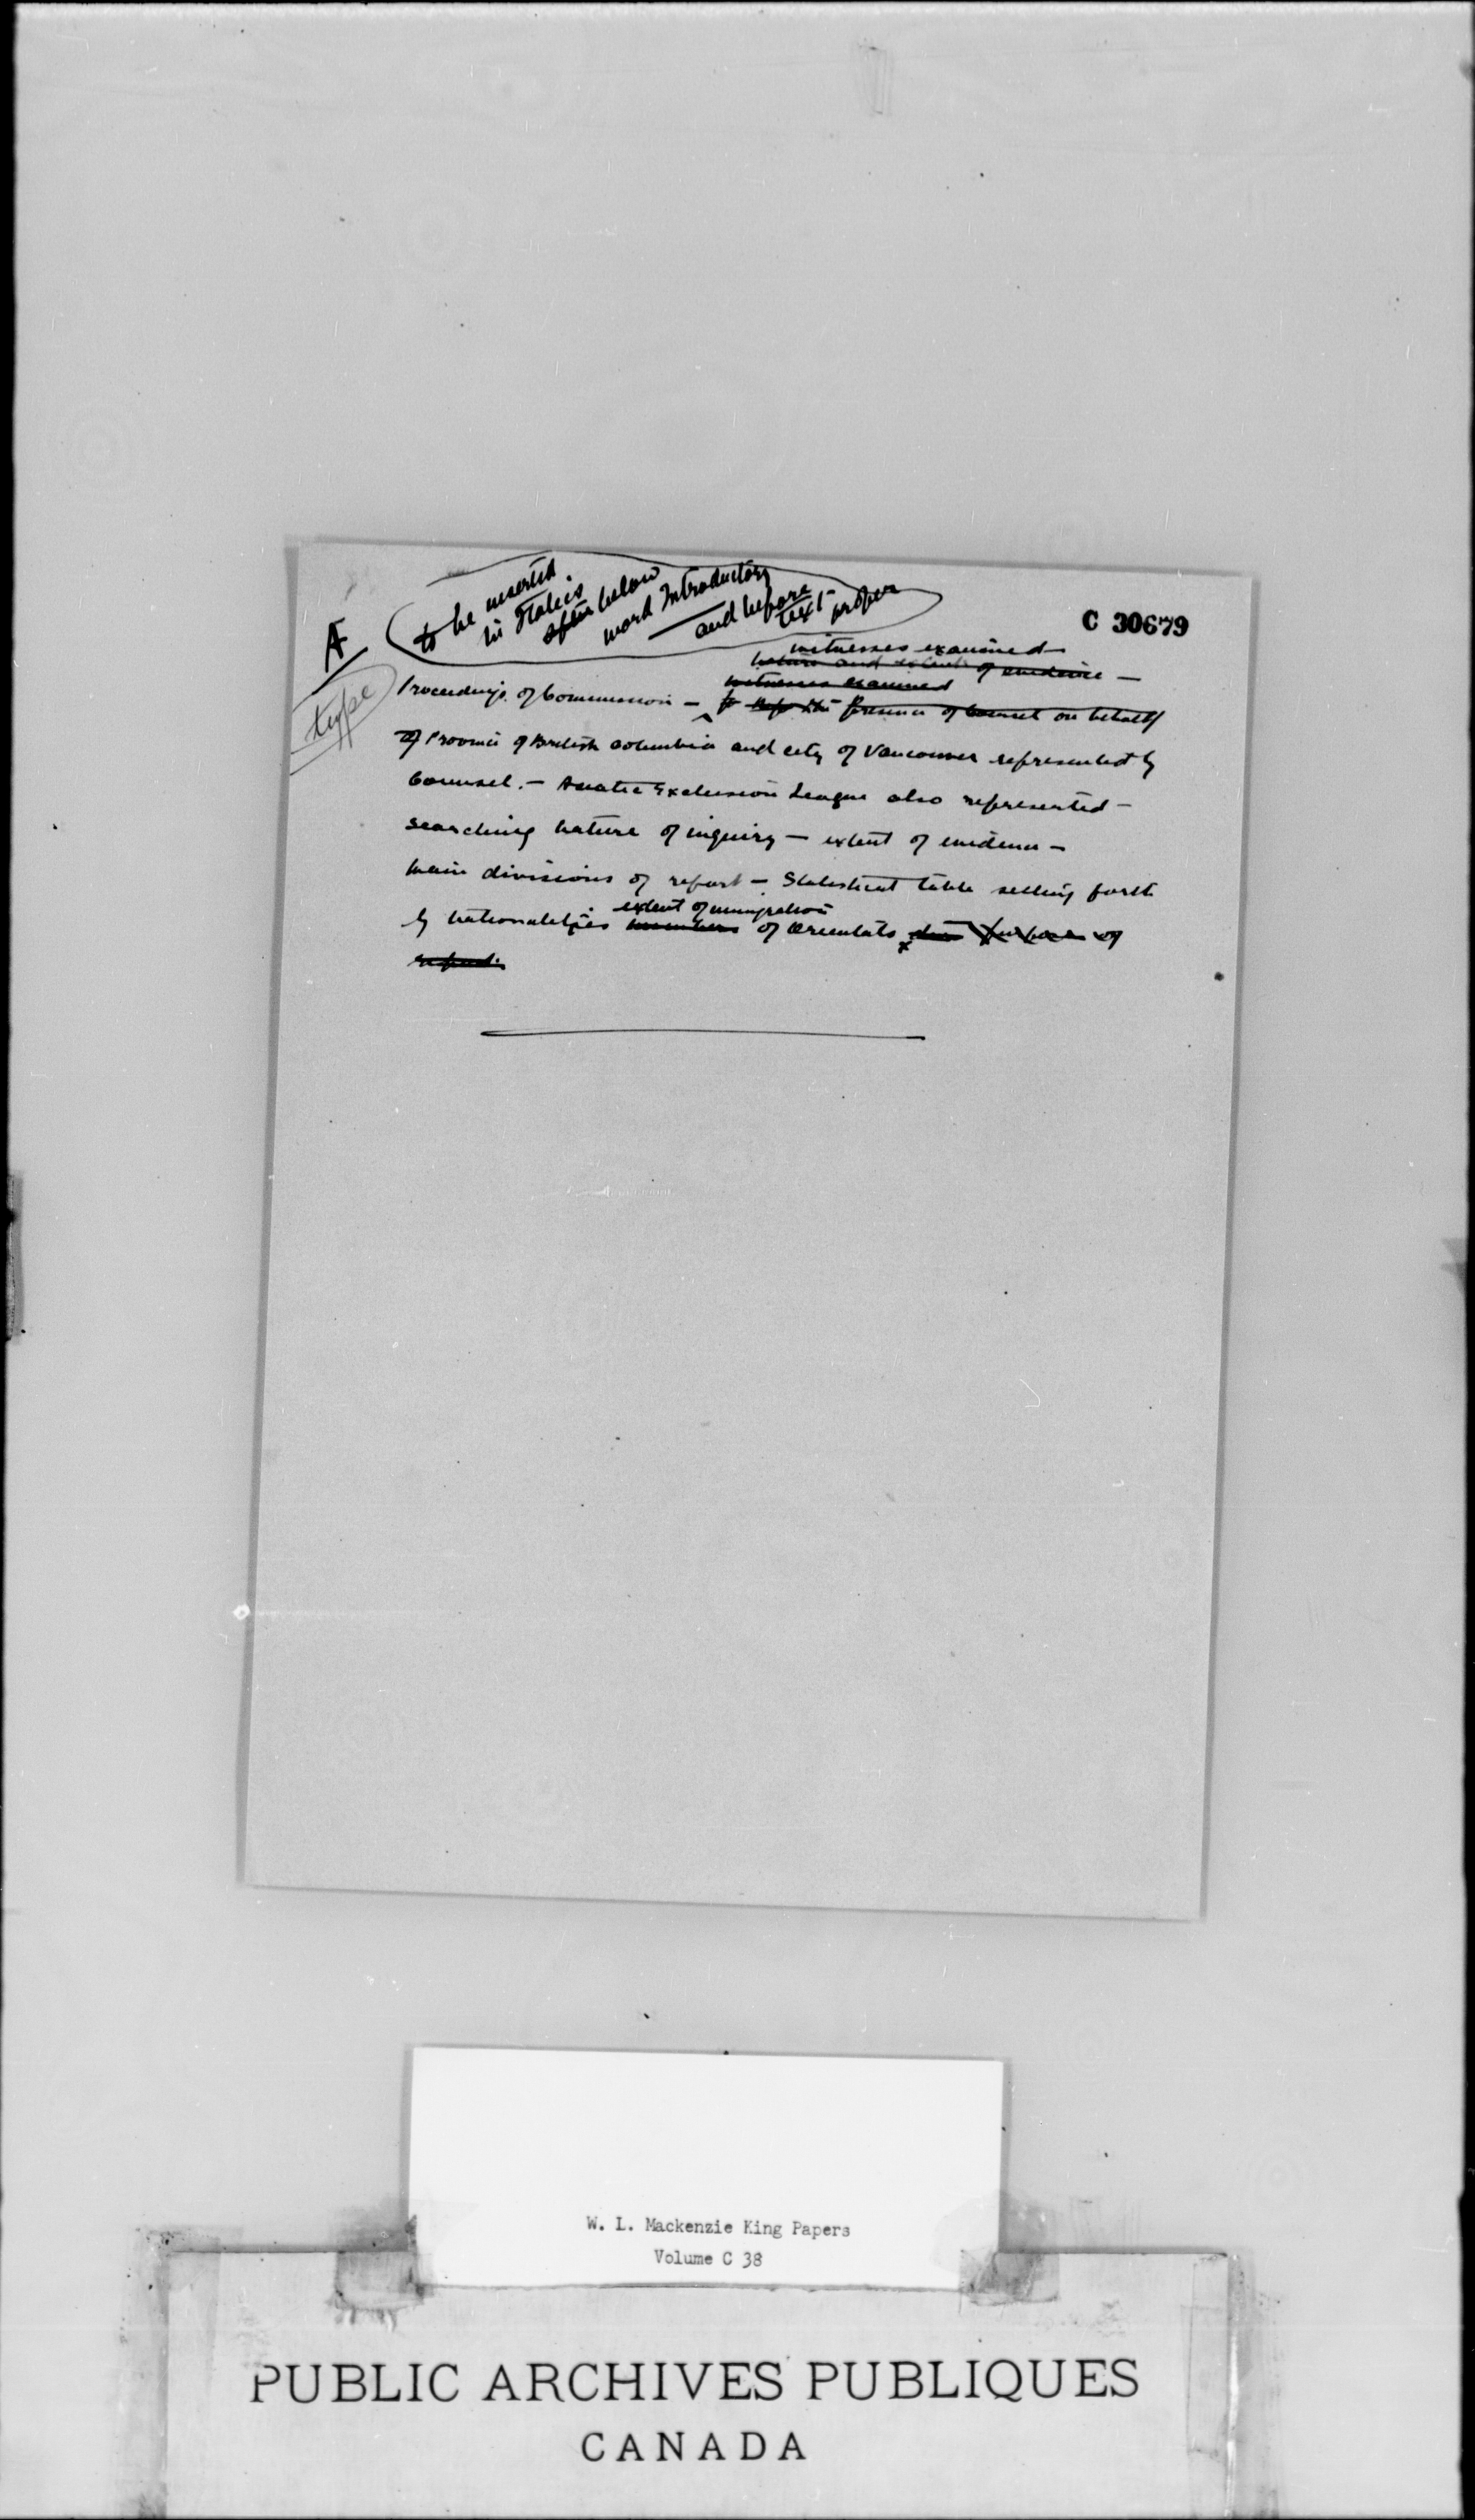 A
to be inserted
in Italics
after below
word Introductory
and before
text proper
C 30679
type
witnesses examined
nature and extent of evidence —
witnesses examined
Proceedings of Commission — presence of counsel on behalf
of Province of British Columbia and city of Vancouver represented by
Counsel. — Asiatic Exclusion League also represented —
searching nature of inquiry — extent of evidence —
main divisions of report — Statistical table setting forth
extent of immigration
by nationalities numbers of Orientals purpose of
report.
W. L. Mackenzie King Papers
Volume C 38
PUBLIC ARCHIVES PUBLIQUES
CANADA